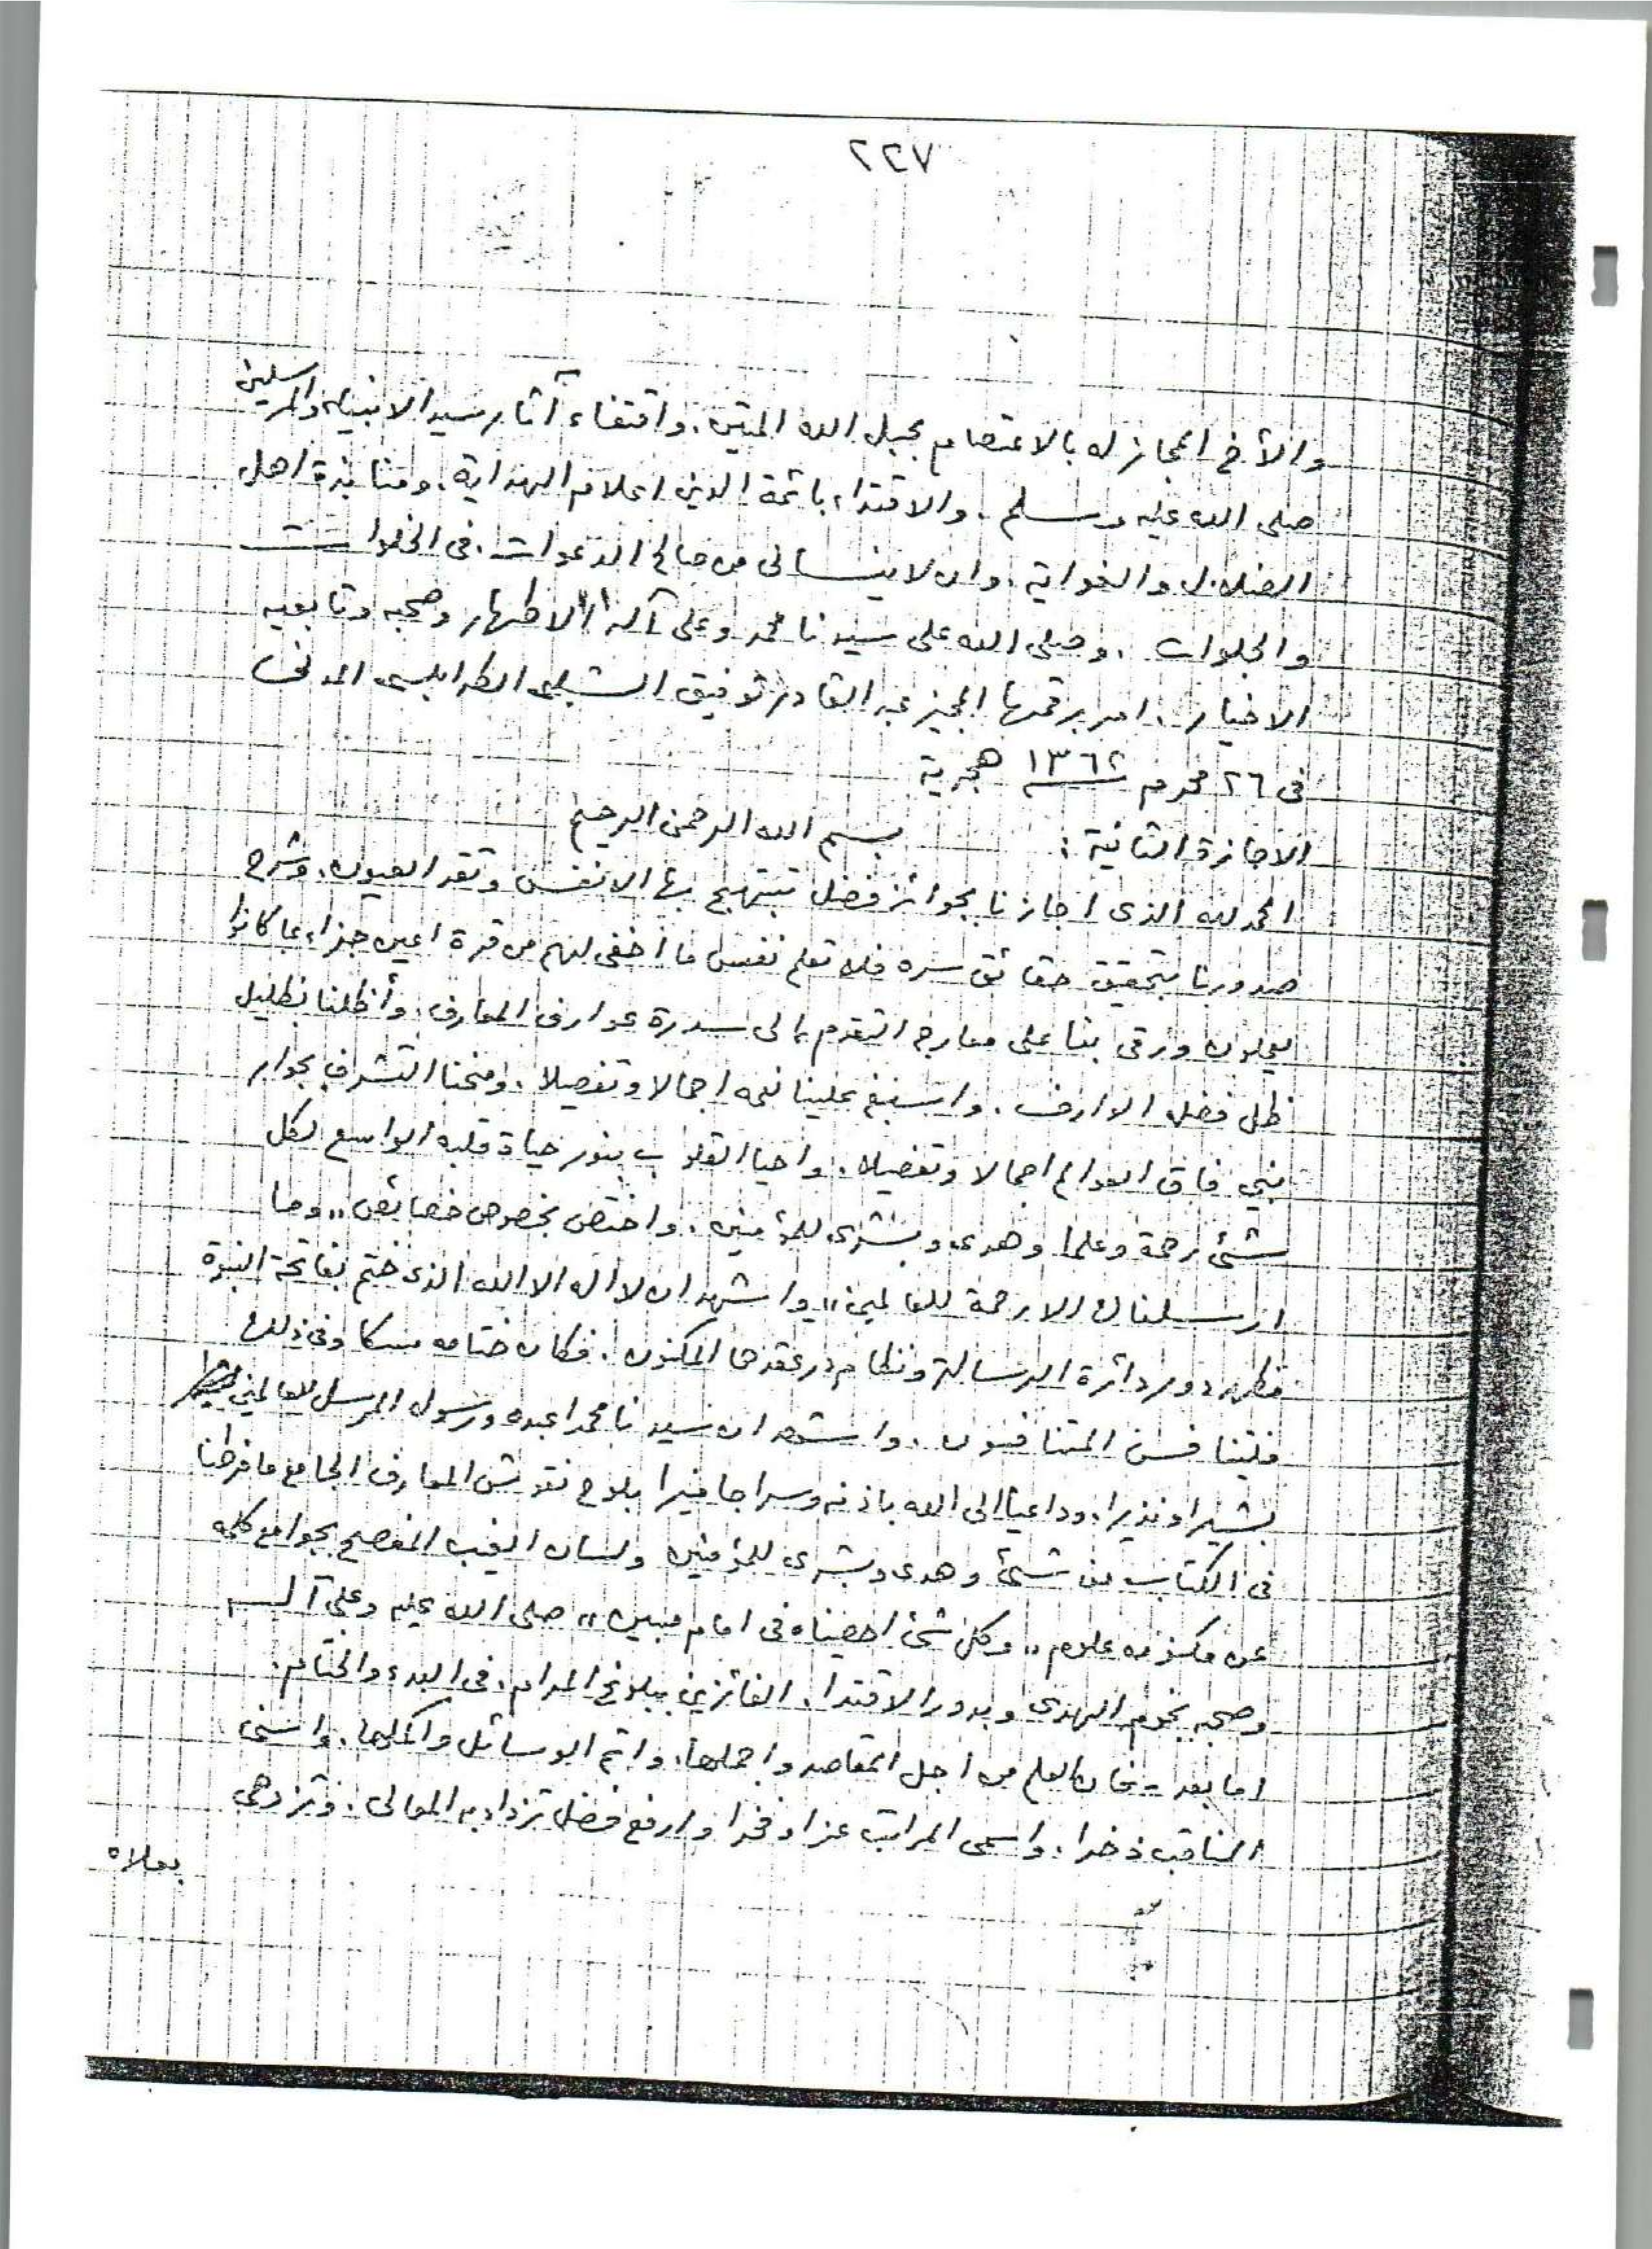 ٢٢٧
والأخ المجاز له بالاعتصام بحبل الله المتين. واقتفاء آثار سيد الانبياء والمرسلين
صلى الله عليه وسلم. والاقتداء بائمة الدين اعلام الهداية. ومنابذة اهل
الضلال والغواية. وان لا ينساني من صالح الدعوات. في الخلوات
والجلوات. وصلى الله على سيدنا محمد وعلى آله الاطهار وصحبه وتابعيه
الاخيار. امر برقمها المجيز عبد القادر توفيق الشلبي الطرابلسي المدني
في ٢٦ محرم ١٣٦٢ هجرية
الاجازة الثانية: بسم الله الرحمن الرحيم
الحمد لله الذى اجازنا بجوائز فضل تبتهج بها الانفس وتقر العيون. وشرح
صدورنا بتحقيق حقائق سره فلا تعلم نفس ما أخفى لهم من قرة اعين جزاء بما كانوا
يعملون ورقى بنا على معارج التقدم الى سدرة عوارف المعارف. وأظلنا بظليل
ظل فضله الوارف. واسبغ علينا نعمه اجمالا وتفصيلا. ومنحنا التشرف بجوار
نبي فاق العوالم اجمالا وتفضيلا. واحيا القلوب بنور حياة قلبه الواسع لكل
شئ رحمة وعلما وهدى وبشرى للمؤمنين. واختص بخصوص خصايص "وما
ارسلناك الا رحمة للعالمين" واشهد ان لا اله الا الله الذى ختم بفاتحة النبوة
دور دائرة الرسالة ونظام در عقدها المكنون. فكان ختامه مسكا وفي ذلك
فليتنافس المتنافسون. واشهد ان سيدنا محمدا عبده ورسوله المرسل للعالمين
بشيرا ونذيرا. وداعيا الى الله باذنه وسراجا منيرا بلوح نقوش المعارف الجامع ما فرطنا
في الكتاب من شئ وهدى وبشرى للمؤمنين ولسان الغيب المفصح بجوامع كلمه
عن مكنون علوم "وكل شئ احصيناه في امام مبين" صلى الله عليه وعلى آله
وصحبه نجوم الهدى وبدور الاقتدا. الفائزين ببلوغ المرام. في البدء والختام.
اما بعد - فان العلم من اجل المقاصد واجملها. واتم الوسائل واكملها. واسنى
المناقب ذخرا. واسمى المراتب عزا وفخرا وارفع فضل تزدان به المعالى. وتزدهى
بعلاه